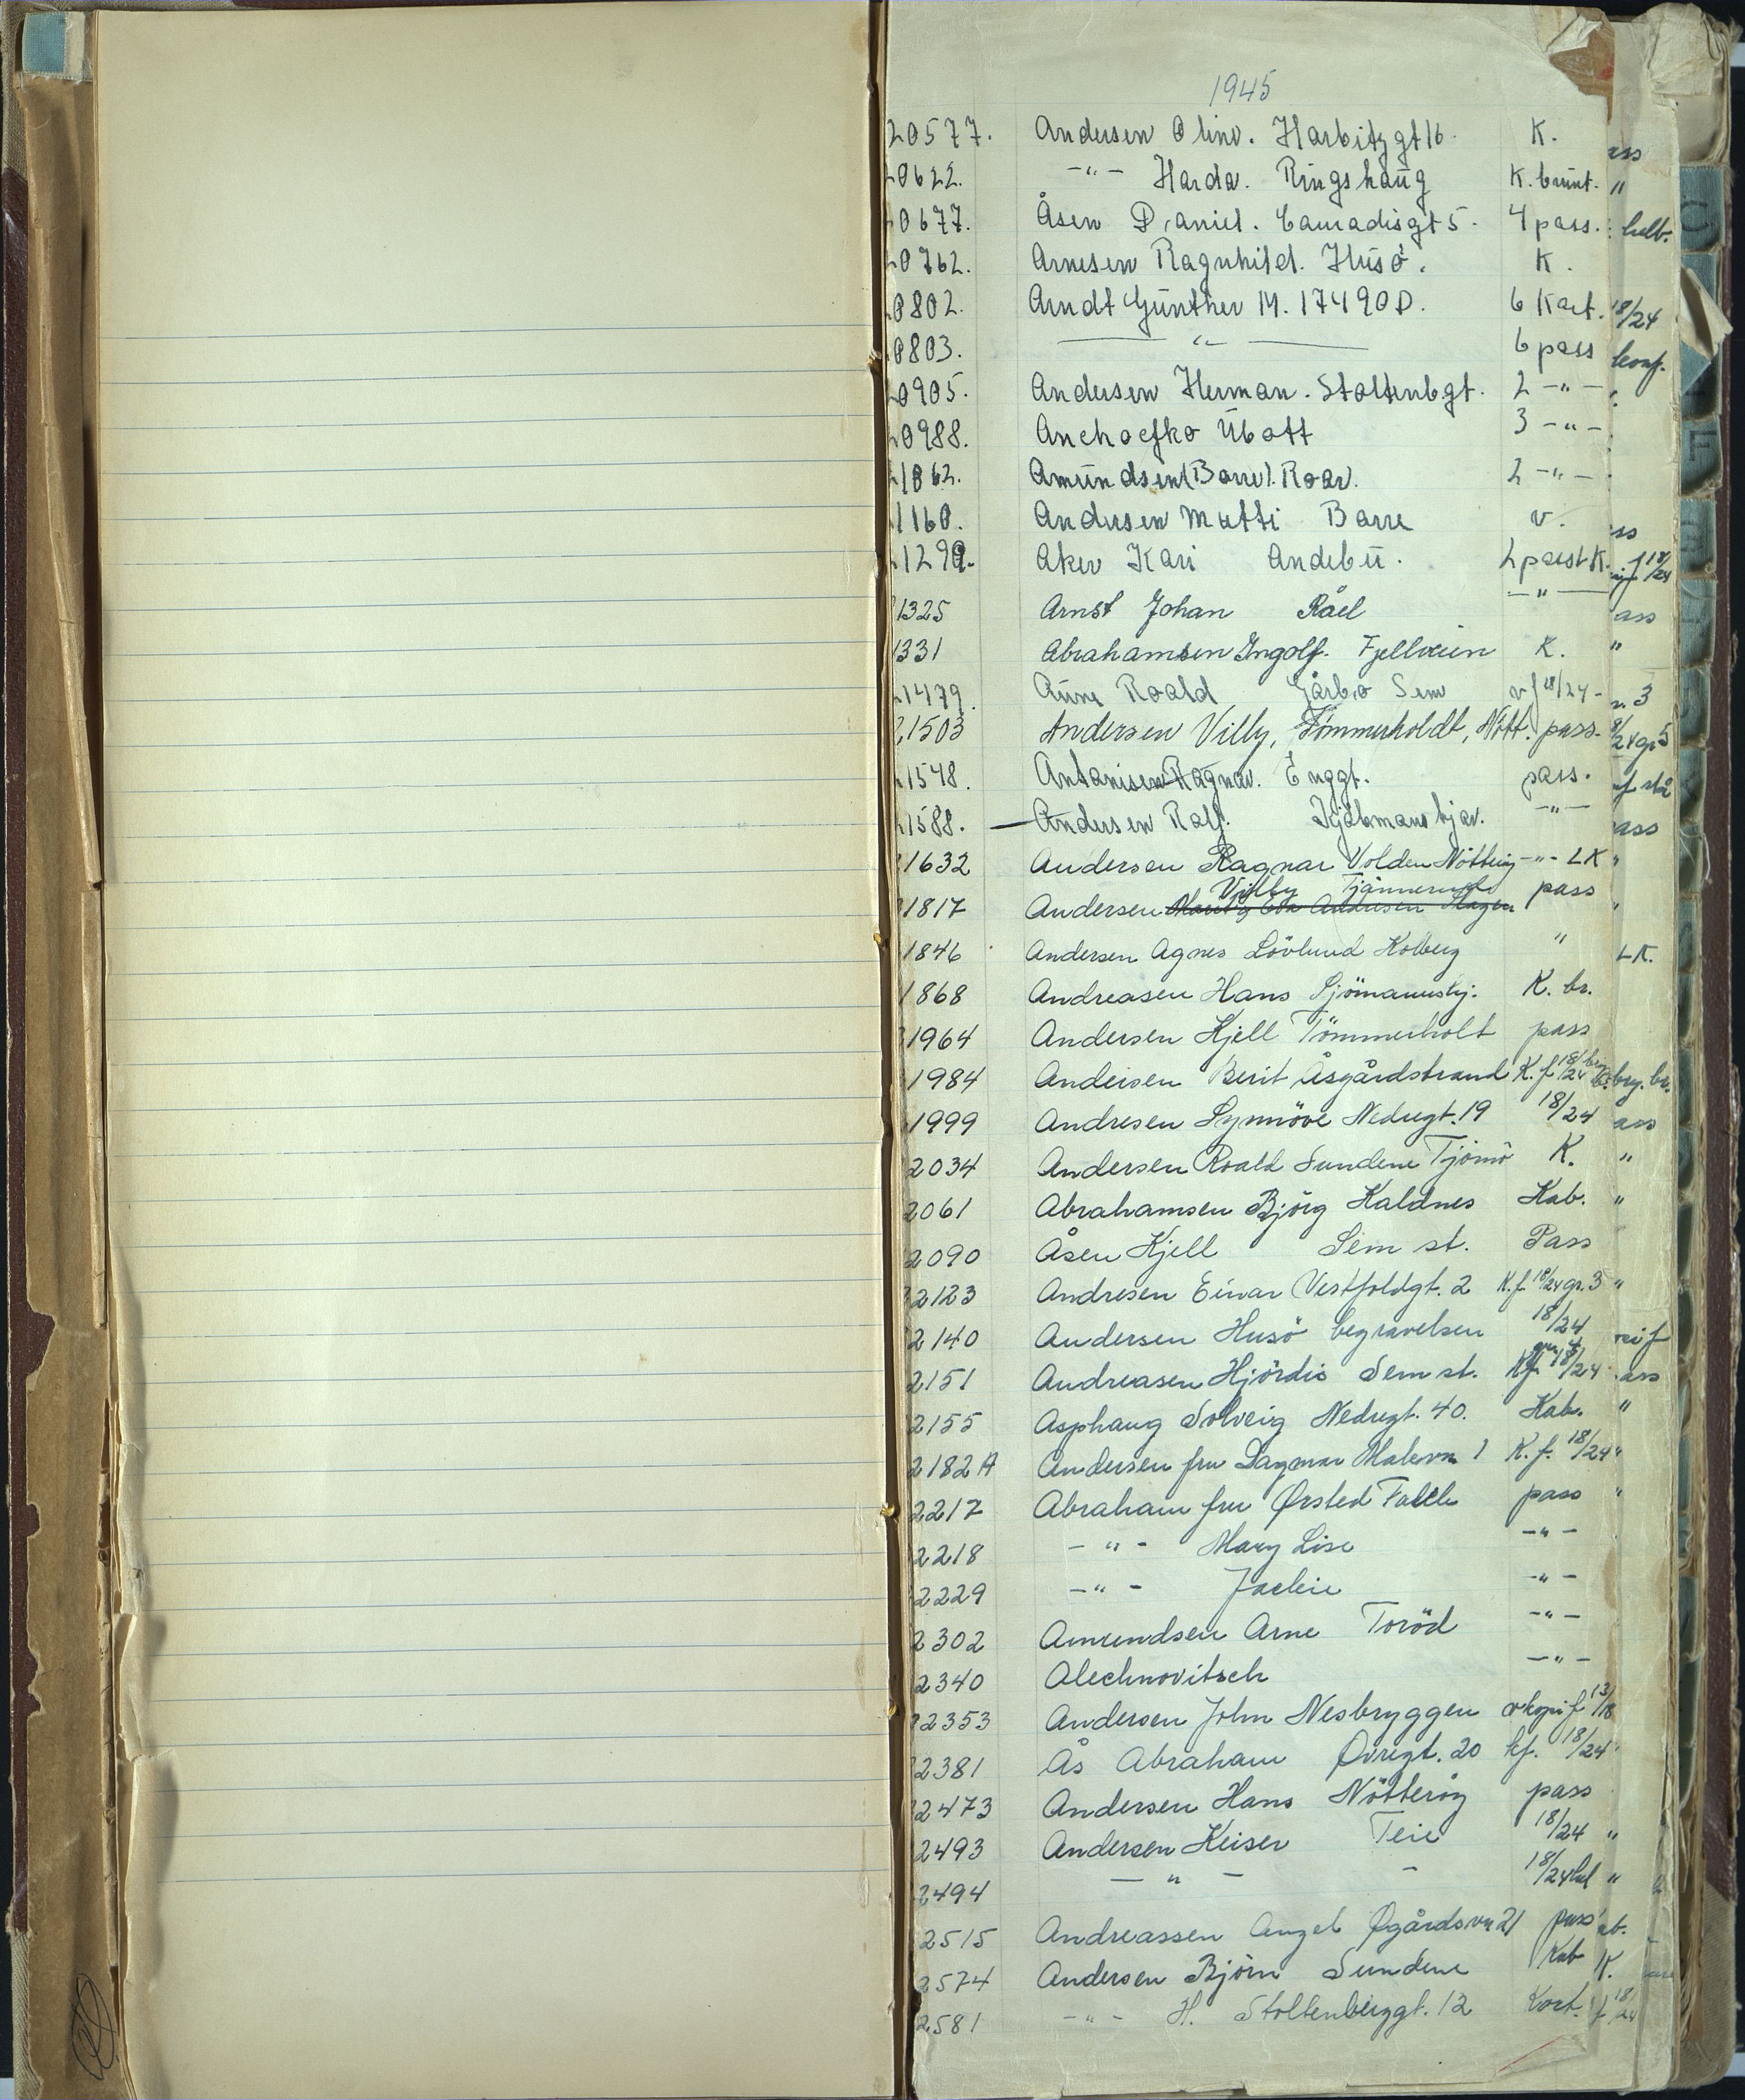 1945
20577. Andersen Oline. Harbitzgt 16. K.
20622. -"- Harda. Ringshaug K. brunt.
0677. Åsen Daniel. Conradisgt 5. 4 pass.
0762. Arnesen Ragnhild. Husö. K.
0802. Arndt Günther M. 17490 D. 6 Kart. 18/24
0803. " 6 pass
0905. Andersen Herman. Stoltenbgt. 2 -"-
0988. Anchoefko Ubått 3 -"-
1062. Amundsen (Barre). Roar. 2 -"-
1160. Andersen Mutti Barre v.
1299. Aker Kari Andebu. 2 pass t K.
1325 Arnst Johan Råel -"-
1331 Abrahamsen Ingolf. Fjellveien K.
1479. Aune Roald Gårbo Sem v f 18/24 -
21503 Andersen Villy, Tömmerholdt, Nött. pass.
1548. Antonisen Ragnar. Enggt. pass.
1588. Andersen Ralf. -"-
1632 Andersen Ragnar Volden Nötteröy -"- LK
1817 Andersen Villy pass
1846 Andersen Agnes Lövlund Kolberg "
1868 Andreasen Hans K. br.
1964 Andersen Kjell Tömmerholt pass
1984 Andersen Berit Åsgårdstrand K. f 18/24
1999 Andresen Synnöve Nedregt. 19 18/24
2034 Andersen Roald Sundene Tjömö K.
2061 Abrahamsen Björg Kaldnes Kab.
2090 Åsen Kjell Sem st. Pass
2123 Andresen Einar Vestfoldgt. 2 K. f. 18/24 gr. 3
2140 Andersen Husö begravelsen 18/24
2151 Andreasen Hjördis Sem st. Kf 18/24
2155 Asphaug Solveig Nedregt. 40. Kab.
2182 A Andersen fru Dagmar 1 K. f. 18/24
2217 Abraham fru Ørsted Falch pass
2218 -"- Mary Lise -"-
2229 -"- Jackie -"-
2302 Amundsen Arne Toröd -"-
2340 Alechnovitsch -"-
22353 Andersen John Nesbryggen
2381 Ås Abraham Øvregt. 20 kf. 18/24
2473 Andersen Hans Nötteröy pass
2493 Andersen Keiser Teie 18/24
2494 - " - - 18/24
2515 Andreassen Angel Øgårdsvn 21 pass
2574 Andersen Björn Sundene Kab
2581 -"- H. Stoltenberggt. 12 Kort.